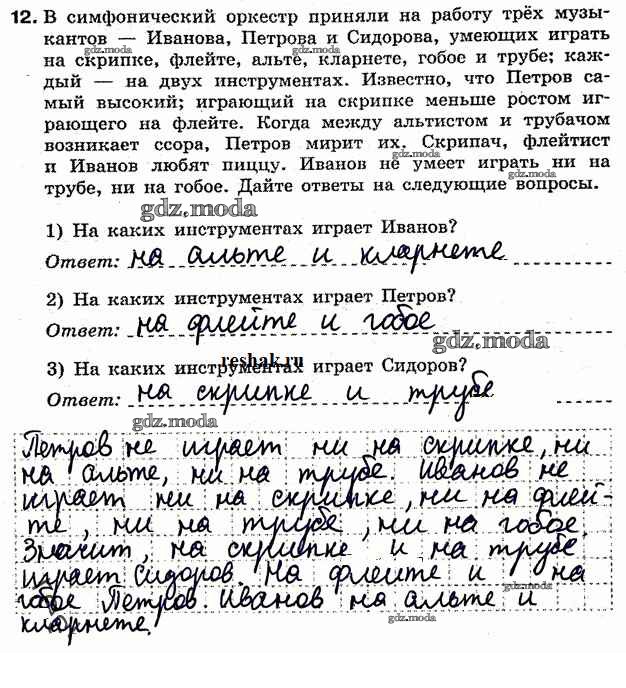 12. В симфонический оркестр приняли на работу трёх музы-
кантов — Иванова, Петрова и Сидорова, умеющих играть
gdz.moda gdz.moda
на скрипке, флейте, альте, кларнете, гобое и трубе; каж-
дый — на двух инструментах. Известно, что Петров са-
мый высокий; играющий на скрипке меньше ростом иг-
рающего на флейте. Когда между альтистом и трубачом
возникает ссора, Петров мирит их. Скрипач, флейтист
gdz.moda
и Иванов любят пиццу. Иванов не умеет играть ни на
gdz.moda
трубе, ни на гобое. Дайте ответы на следующие вопросы.
gdz.moda
1) На каких инструментах играет Иванов?
Ответ: на альте и кларнете
2) На каких инструментах играет Петров?
Ответ: на флейте и гобое
gdz.moda
reshak.ru
3) На каких инструментах играет Сидоров?
Ответ: на скрипке и трубе
gdz.moda
Петров не играет ни на скрипке, ни
на альте, ни на трубе. Иванов не
играет ни на скрипке, ни на флей-
те, ни на трубе, ни на гобое.
Значит, на скрипке и на трубе
играет Сидоров. На флейте и на
gdz.moda
гобое Петров. Иванов на альте и
кларнете.
gdz.moda